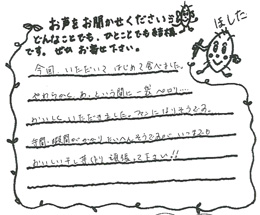 お声をお聞かせください
どんなことでも、ひとことでも結構
です。ぜひ お寄せ下さい。
ほした
今回 いただいて はじめて食べました。
やわらかく、あっという間に一袋ペロリ…
おいしくいただきました。ファンになりそうです。
手間・時間がかかり たいへんそうですが、いつまでも
おいしい干し芋作り 頑張って下さい!!